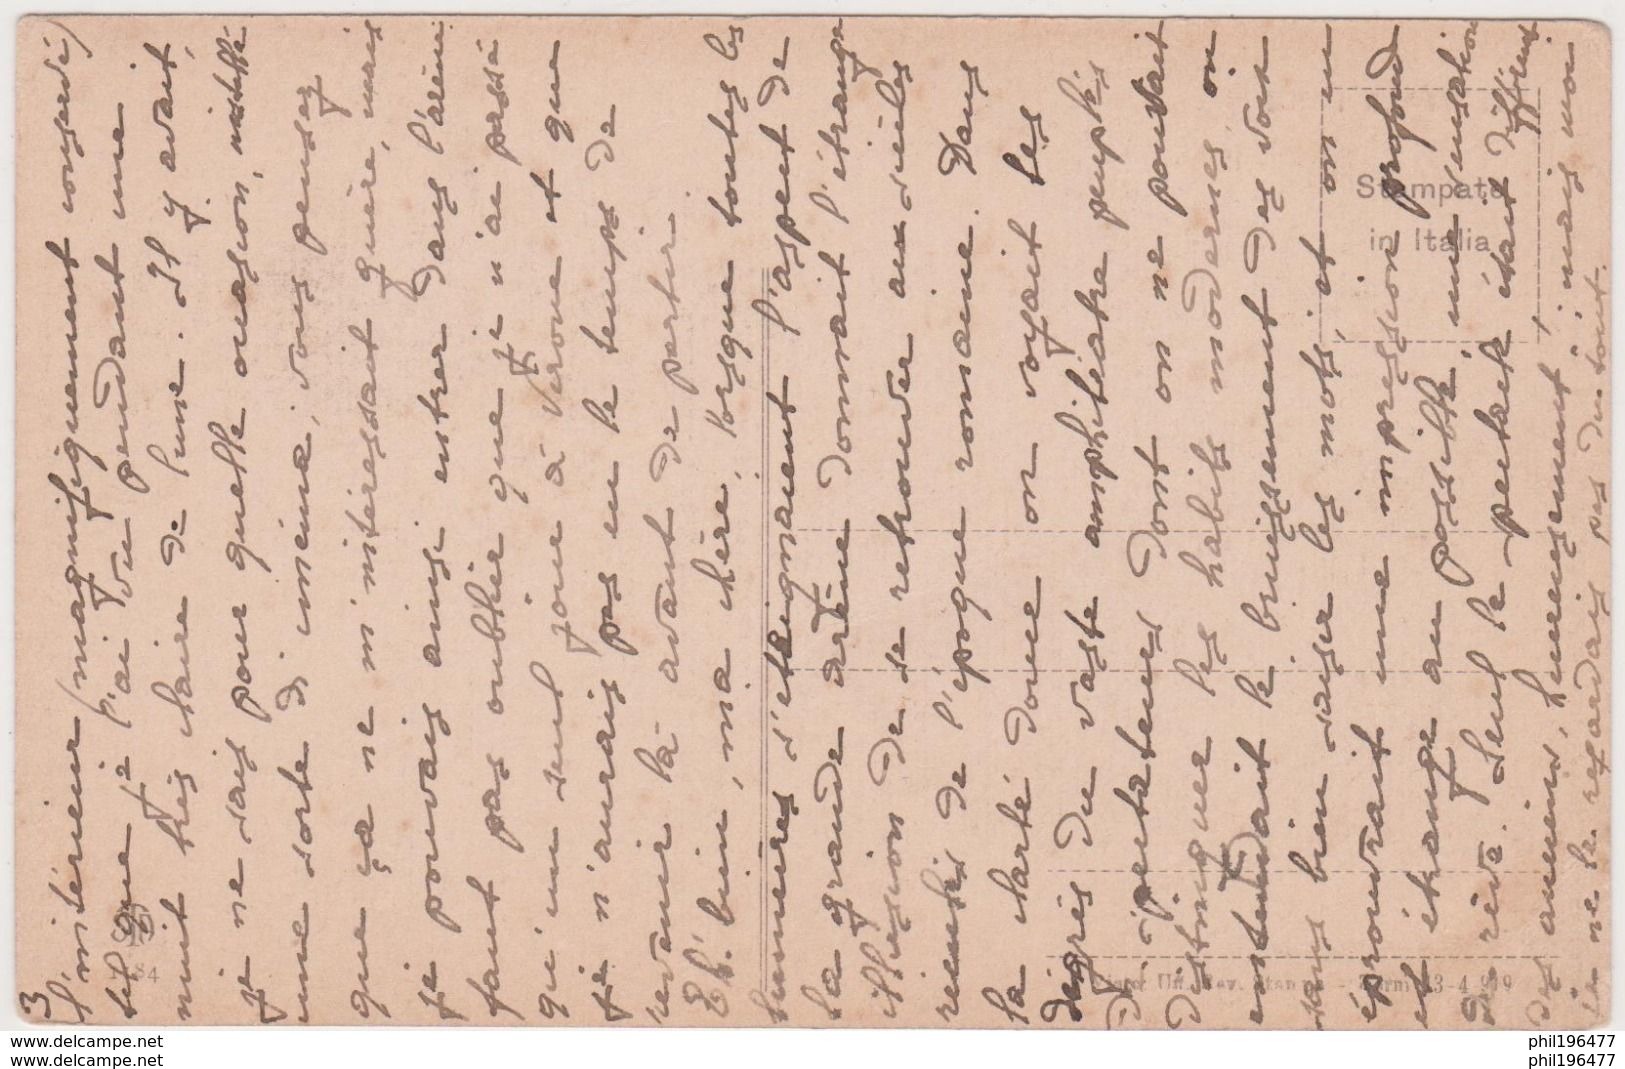 3
l'intérieur (magnifiquement conservé)
tel que je l'ai vu pendant une
nuit très claire de lune. Il y avait,
je ne sais pour quelle occasion,
une sorte de cinéma; vous pensez
que ça ne m'intéressait guère, mais
je pouvais ainsi entrer dans l'arène
faut pas oublier que je n'ai passé
qu'un seul jour à Vérone et que
je n'aurais pas eu le temps de
revenir là avant de partir
Eh! bien, ma chère, lorsque toutes les
lumières s'éteignaient l'aspect de
la grande arène donnait l'étrange
illusion de se retrouver aux siècles
reculés de l'époque romaine. Dans
la clarté douce on voyait les
degrés du vaste amphithéâtre peuplés
de spectateurs dont on ne pouvait
distinguer les habits modernes, on
entendait le bruissement des voix
sans bien saisir les mots, et on en
éprouvait une impression profonde
et étrange au possible, une sensation
de rêve. Seul le spectacle était différent
des anciens, heureusement! mais moi
je ne le regardais pas du tout.
Stampata
in Italia
84
3-4 919
phil196477
delcampe.net
phil196477
delcampe.net